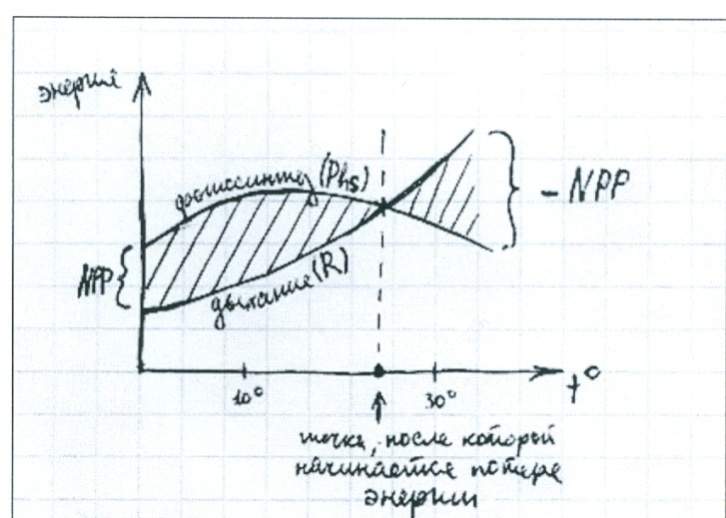 энергия
фотосинтез (Phs)
NPP
дыхание (R)
- NPP
10°
30°
t°
точка, после которой
начинается потеря
энергии